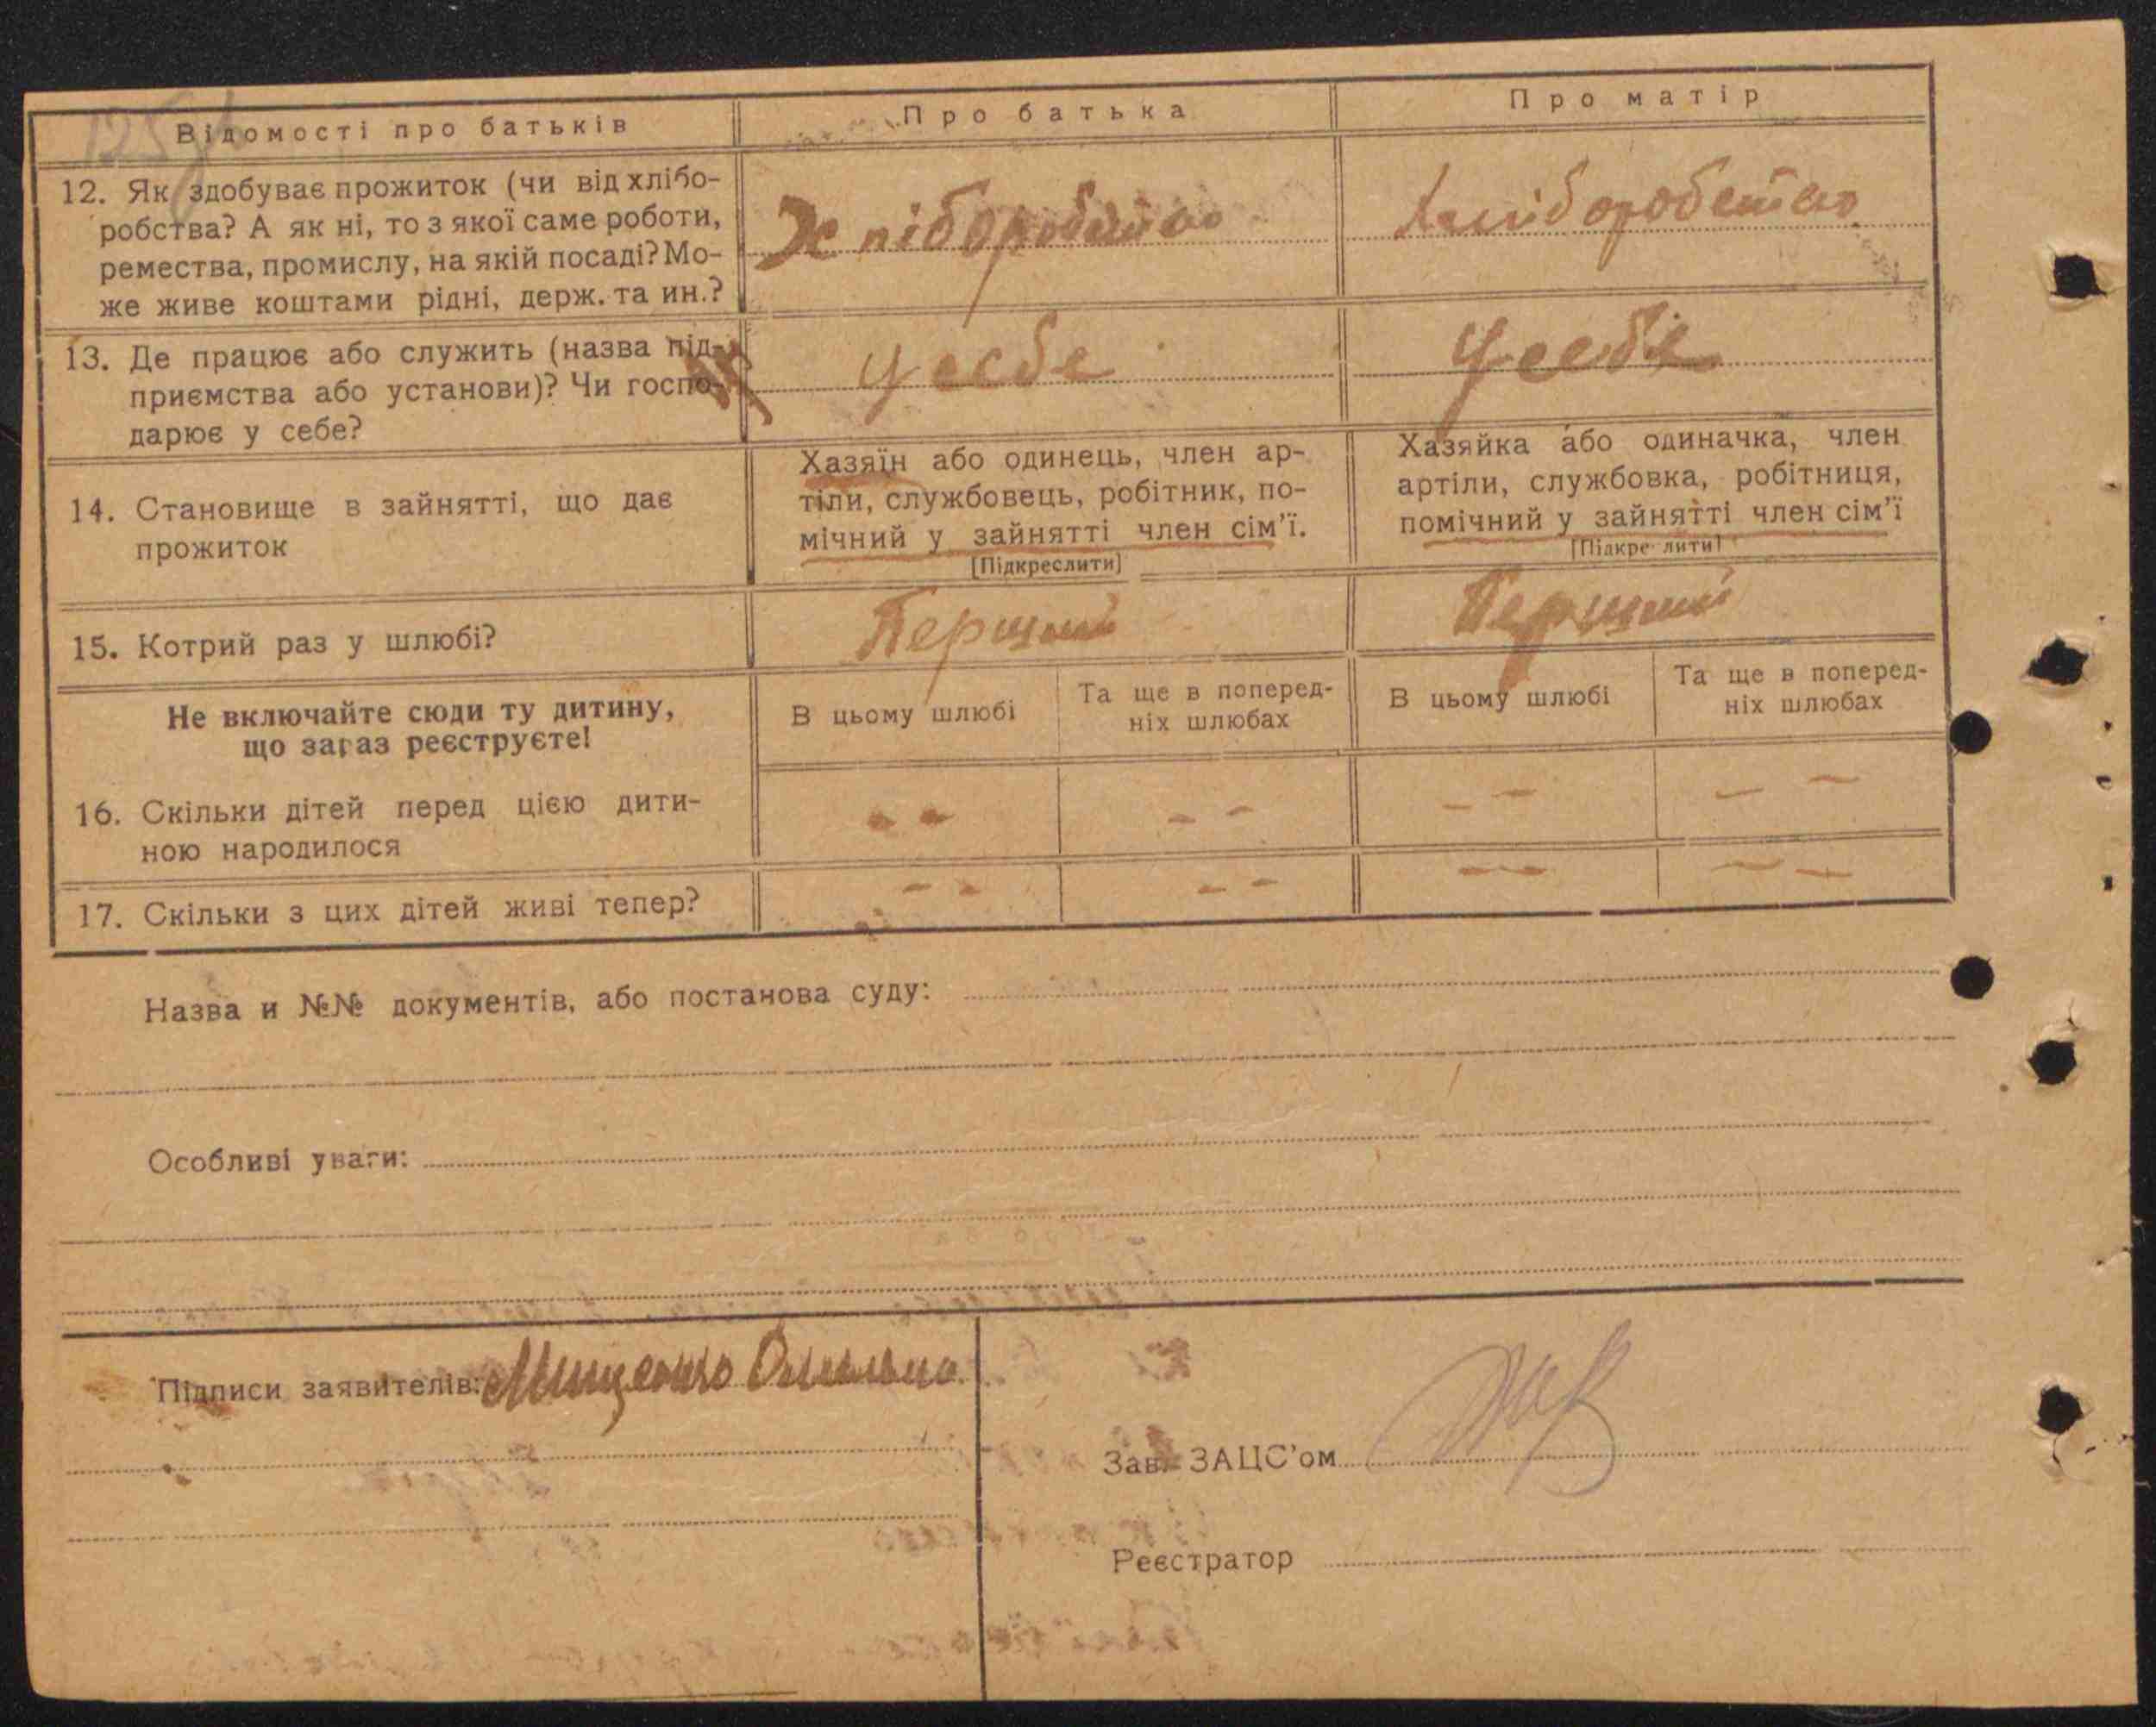 Відомості про батьків
Про батька
Про матір
12. Як здобуває прожиток (чи від хлібо-
робства? А як ні, то з якої саме роботи,
ремества, промислу, на якій посаді? Мо-
же живе коштами рідні, держ. та ин.?
Хліборобство
Хліборобство
13. Де працює або служить (назва під-
приємства або установи)? Чи госпо-
дарює у себе?
У себе
У себе
14. Становище в зайнятті, що дає
прожиток
Хазяїн або одинець, член ар-
тіли, службовець, робітник, по-
мічний у зайнятті член сім'ї.
[Підкреслити]
Хазяйка або одиначка, член
артіли, службовка, робітниця,
помічний у зайнятті член сім'ї
[Підкреслити]
15. Котрий раз у шлюбі?
Перший
Перший
Не включайте сюди ту дитину,
що зараз реєструєте!
В цьому шлюбі
Та ще в поперед-
ніх шлюбах
В цьому шлюбі
Та ще в поперед-
ніх шлюбах
16. Скільки дітей перед цією дити-
ною народилося
- -
- -
- -
- -
17. Скільки з цих дітей живі тепер?
- -
- -
- -
- -
Назва и №№ документів, або постанова суду:
Особливі уваги:
Підписи заявителів: Мищенко
Зав. ЗАЦС'ом
Реєстратор